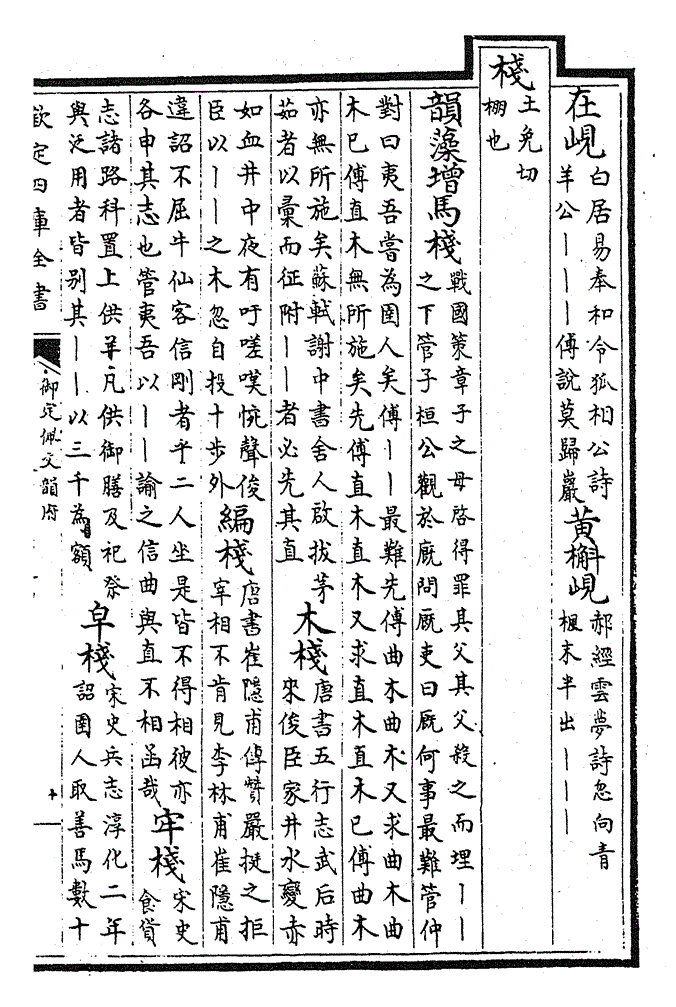 在峴 白居易奉和令狐相公詩
羊公丨丨丨傅說莫歸巖
黃槲峴 郝經雲夢詩忽向青
楓末半出丨丨丨
棧 土免切
棚也
韻藻增馬棧 戰國策章子之母啓得罪其父其父殺之而埋丨丨
之下管子桓公觀於廐問廐吏曰廐何事最難管仲
對曰夷吾嘗為圉人矣傅丨丨最難先傅曲木曲木又求曲木曲
木已傅直木無所施矣先傅直木直木又求直木直木已傅曲木
亦無所施矣蘇軾謝中書舍人啟拔茅
茹者以彙而征附丨丨者必先其直
木棧 唐書五行志武后時
來俊臣家井水變赤
如血井中夜有吁嗟嘆惋聲俊
臣以丨丨之木忽自投十步外
編棧 唐書崔隱甫傳贊嚴挺之拒
宰相不肯見李林甫崔隱甫
違詔不屈牛仙客信剛者乎二人坐是皆不得相彼亦
各申其志也管夷吾以丨丨諭之信曲與直不相函哉
牢棧 宋史
食貨
志諸路科置上供羊凡供御膳及祀祭
與泛用者皆別其丨丨以三千為額
皁棧 宋史兵志淳化二年
詔圉人取善馬數十
欽定四庫全書
御定佩文韻府